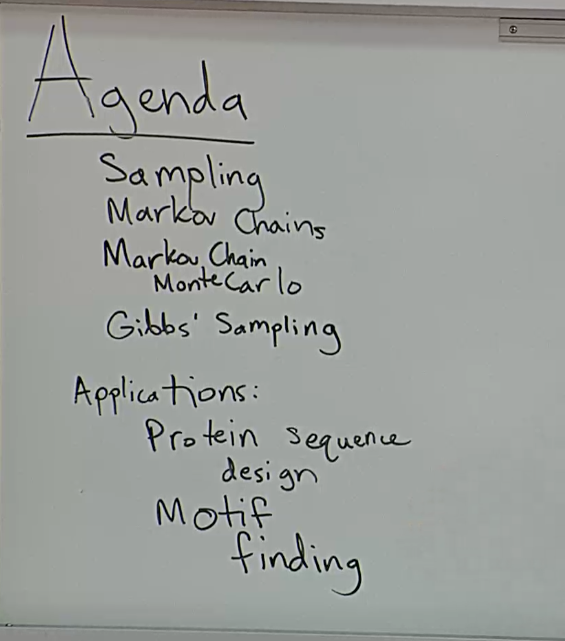 Agenda
Sampling
Markov Chains
Markov Chain
Monte Carlo
Gibbs' Sampling
Applications:
Protein sequence
design
Motif
finding